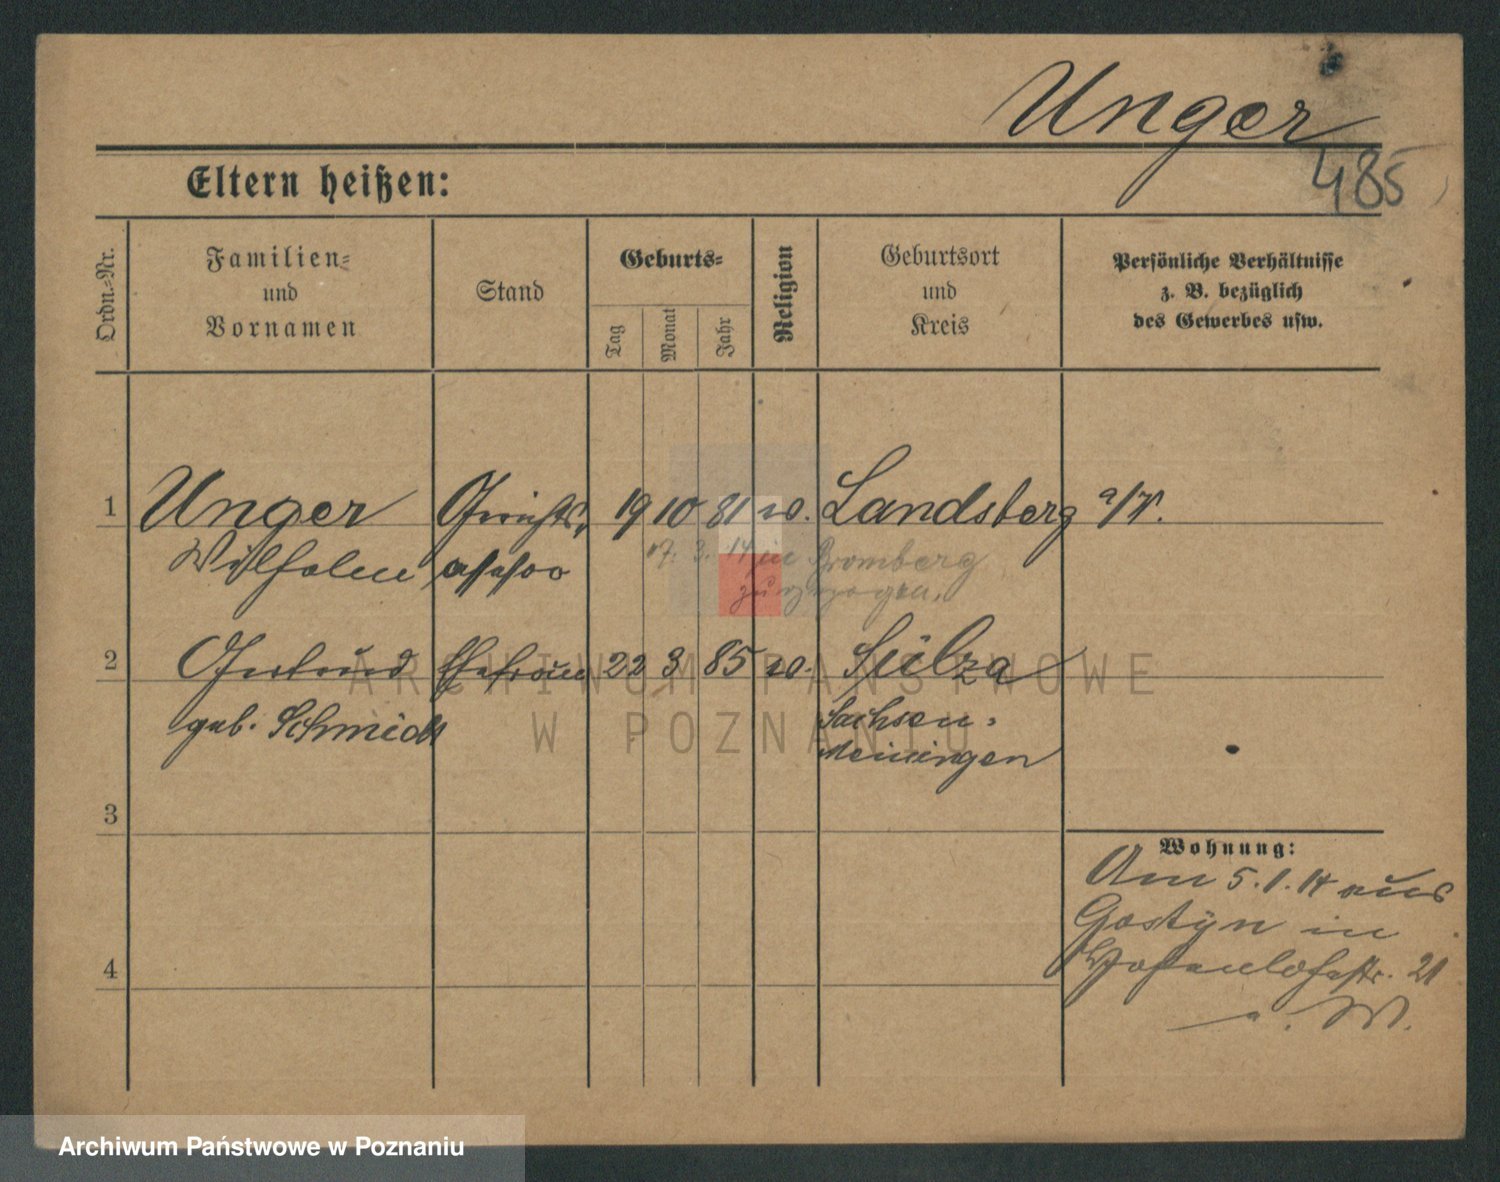 Unger
485
Eltern heißen:
Ordn.-Nr.
Familien-
und
Vornamen
Stand
Geburts-
Tag
Monat
Jahr
Religion
Geburtsort
und
Kreis
Persönliche Verhältnisse
z. B. bezüglich
des Gewerbes usw.
1 Unger Gerichts 19 10 81 Landsberg a/W.
Wilhelm assessor
14 in Bromberg
zugezogen.
2 Gertrud Ehefrau 22 3 85 Sülza
geb. Schmidt Sachsen-
Meiningen
3
Wohnung:
Am 5.1.14 aus
Gostyn in
Hohenlohestr. 21
4
ARCHIWUM PAŃSTWOWE
W POZNANIU
Archiwum Państwowe w Poznaniu